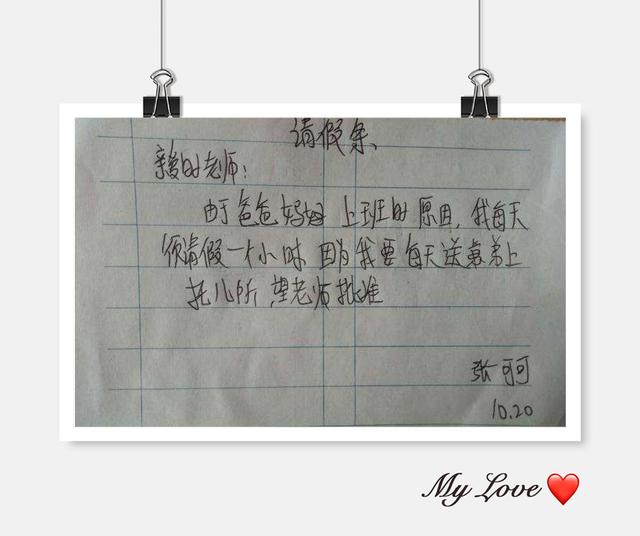 请假条
亲爱的老师:
由于爸爸妈妈上班的原因,我每天
须请假一个小时 因为我要每天送弟弟上
托儿所,望老师批准
张可可
10.20
My Love